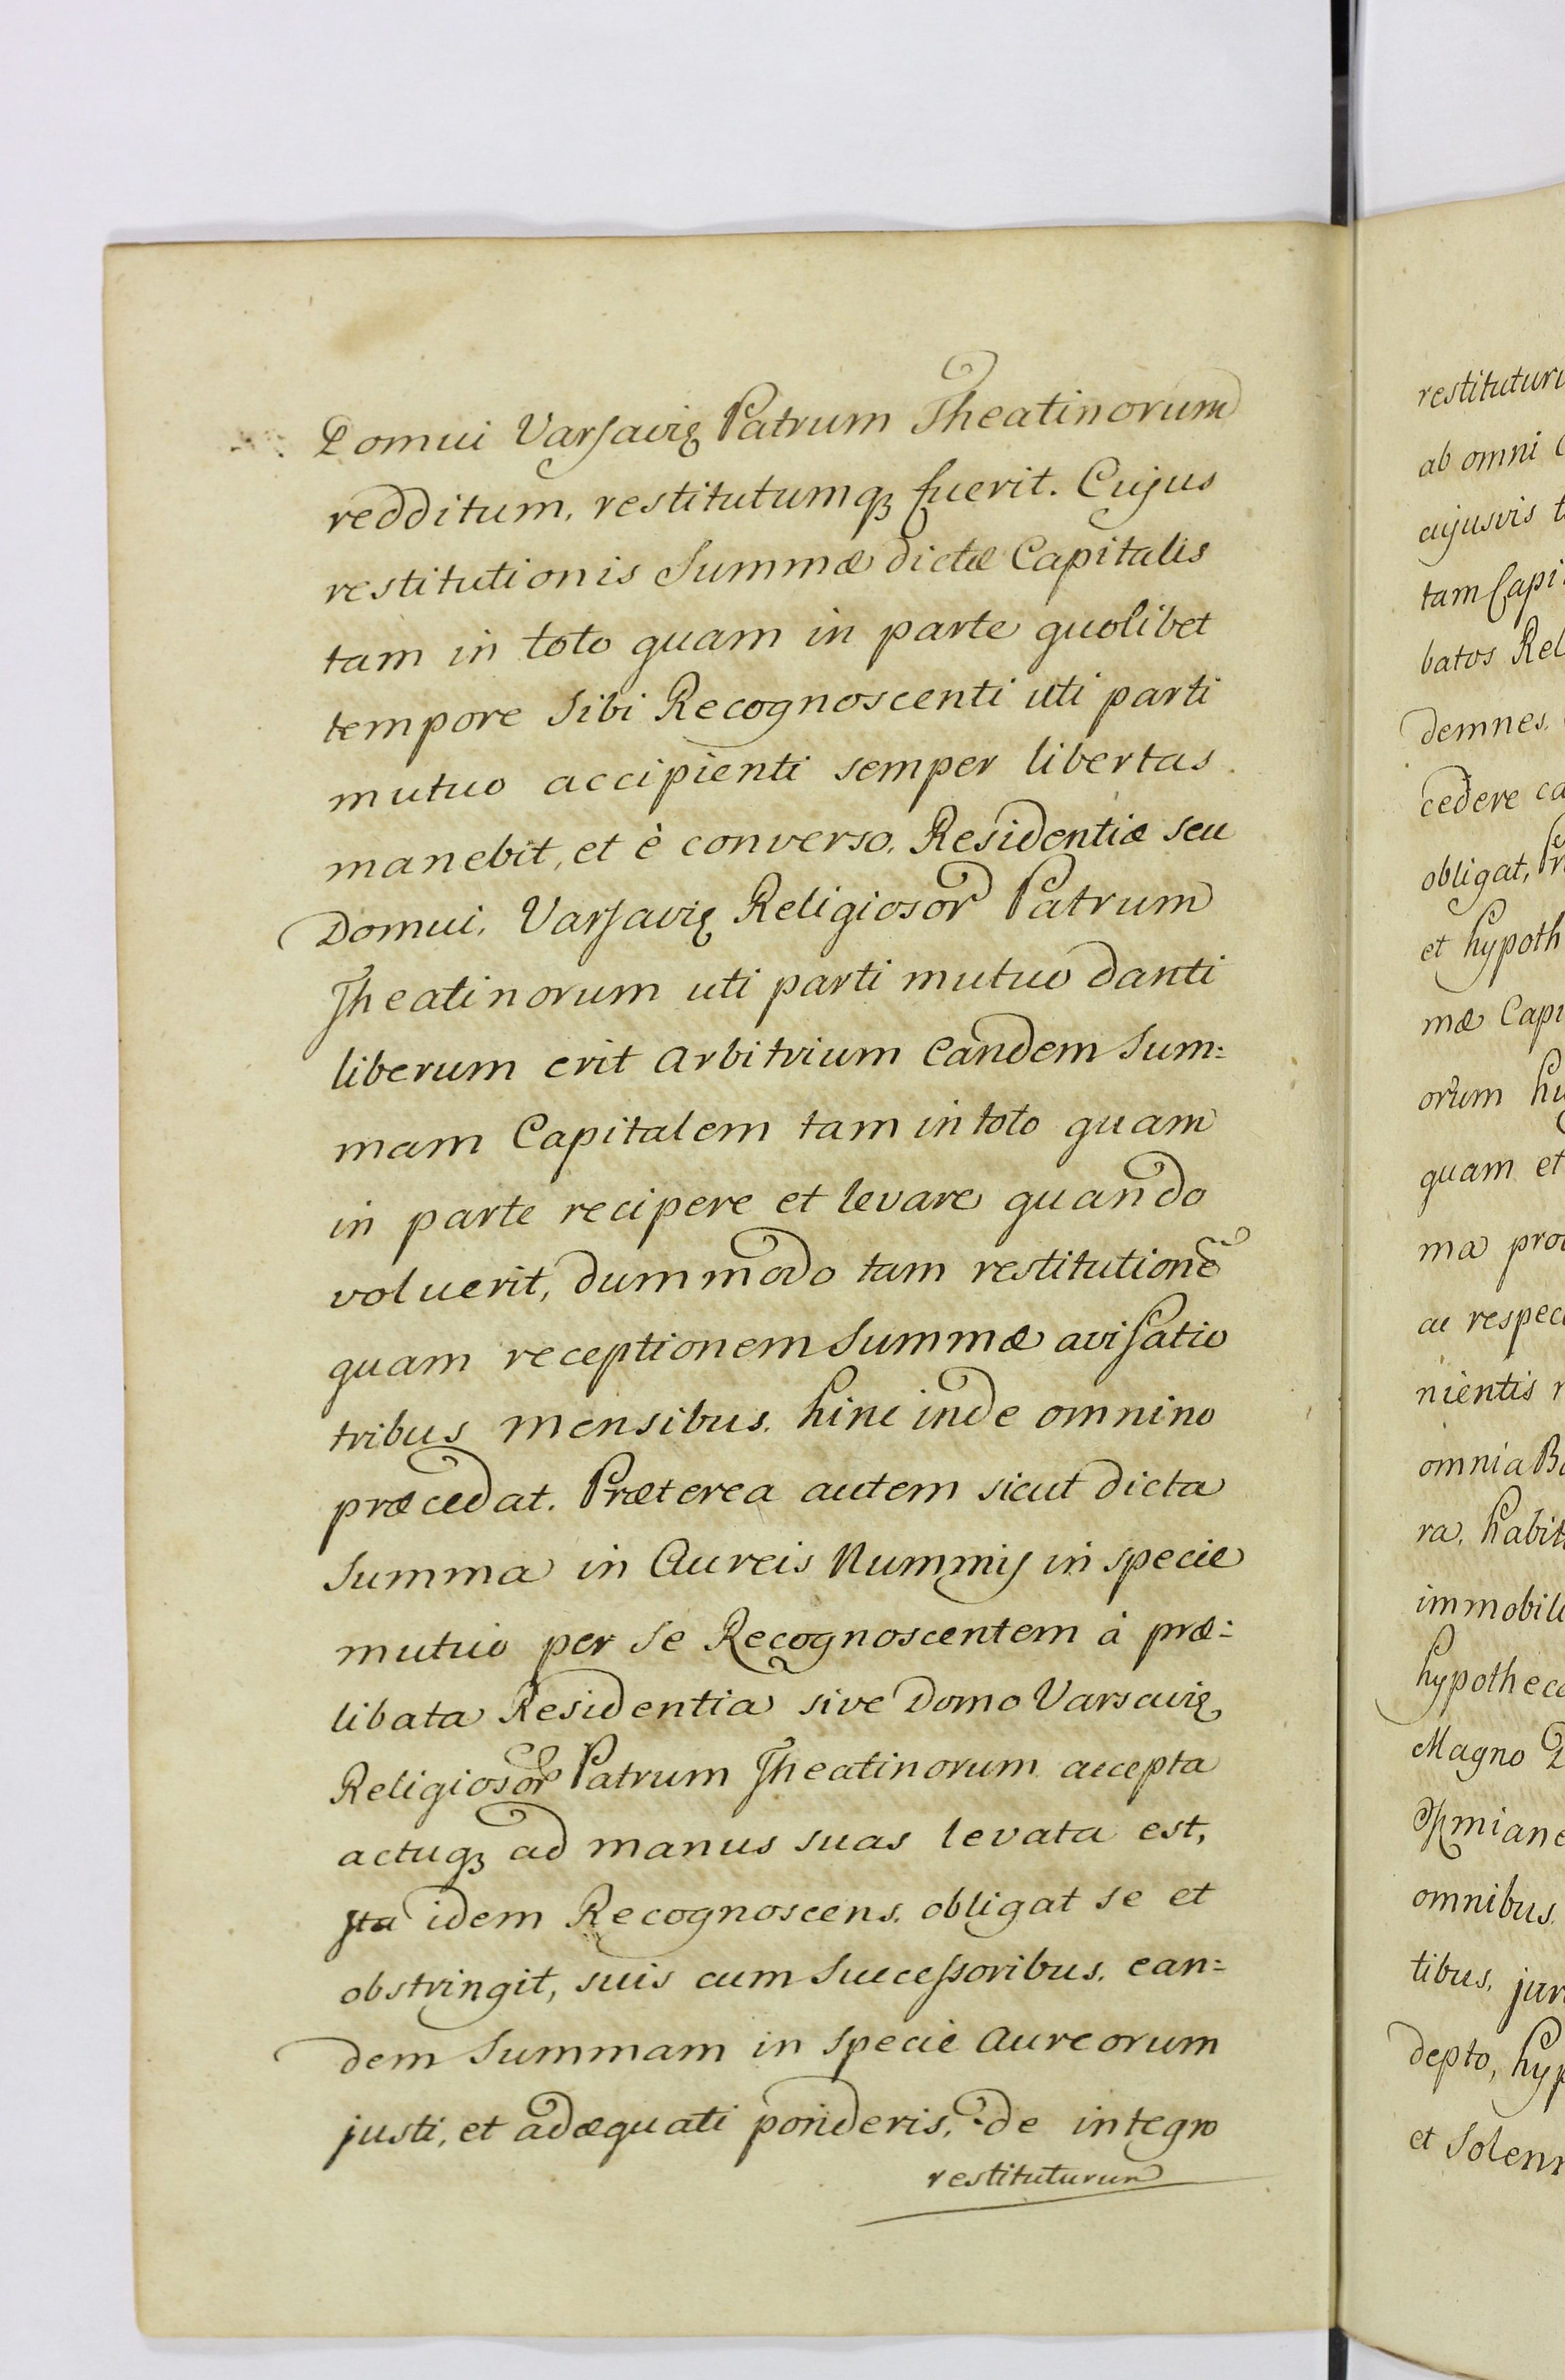 Domui Varsavię Patrum Theatinorum
redditum, restitutumqȝ fuerit. Cujus
restitutionis Summæ dictæ Capitalis
tam in toto quam in parte quolibet
tempore Sibi Recognoscenti uti parti
mutuo accipienti semper libertas
manebit, et è converso. Residentiæ seu
Domui. Varsavię Religiosor Patrum
Theatinorum uti parti mutuo danti
liberum erit arbitrium eandem Sum:
mam Capitalem tam in toto quam
in parte recipere et levare quando
voluerit, dummodo tam restitutionē
quam receptionem Summæ avisatio
tribus mensibus. hinc inde omnino
præcedat. Præterea autem sicut dicta
Summa in Aureis Nummis in specie
mutuo per Se Recognoscentem à præ:
libata Residentia sive Domo Varsavię
Religiosor Patrum Theatinorum accepta
actuqȝ ad manus suas levata est,
Ita idem Recognoscens. obligat se et
obstringit, suis cum Successoribus. ean:
dem Summam in Specie Aureorum
justi, et adæquati ponderis, de integro
restituturum
restituturu
ab omni
cujusvis
tam Capi
batos Rel
demnes.
cedere ca
obligat,
et hypoth
mæ Capi
orum hu
quam et
ma pro
ac respec
nientis
omnia Bo
ra, habit
immobil
hypotheca
Magno
Oſzmiane
omnibus.
tibus, jur
depto, hyp
et Solen